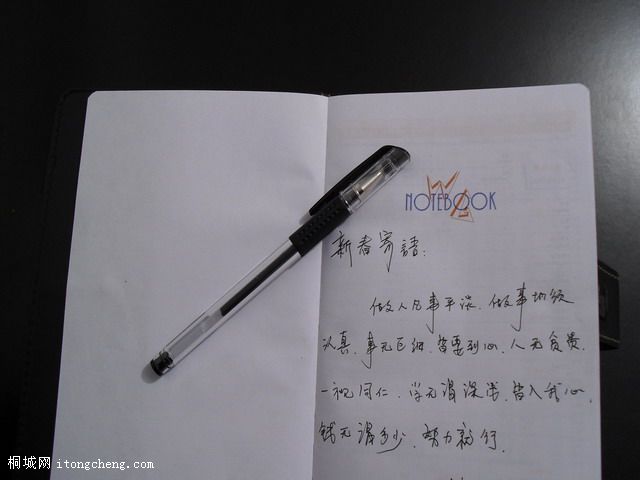 NOTEBOOK
新春寄語:
做人凡事平淡,做事必须
认真,事无巨细,皆要到心,人无贫贵,
一视同仁,学无谓深浅,皆入我心,
钱无谓多少,努力就行.
桐城网 itongcheng.com